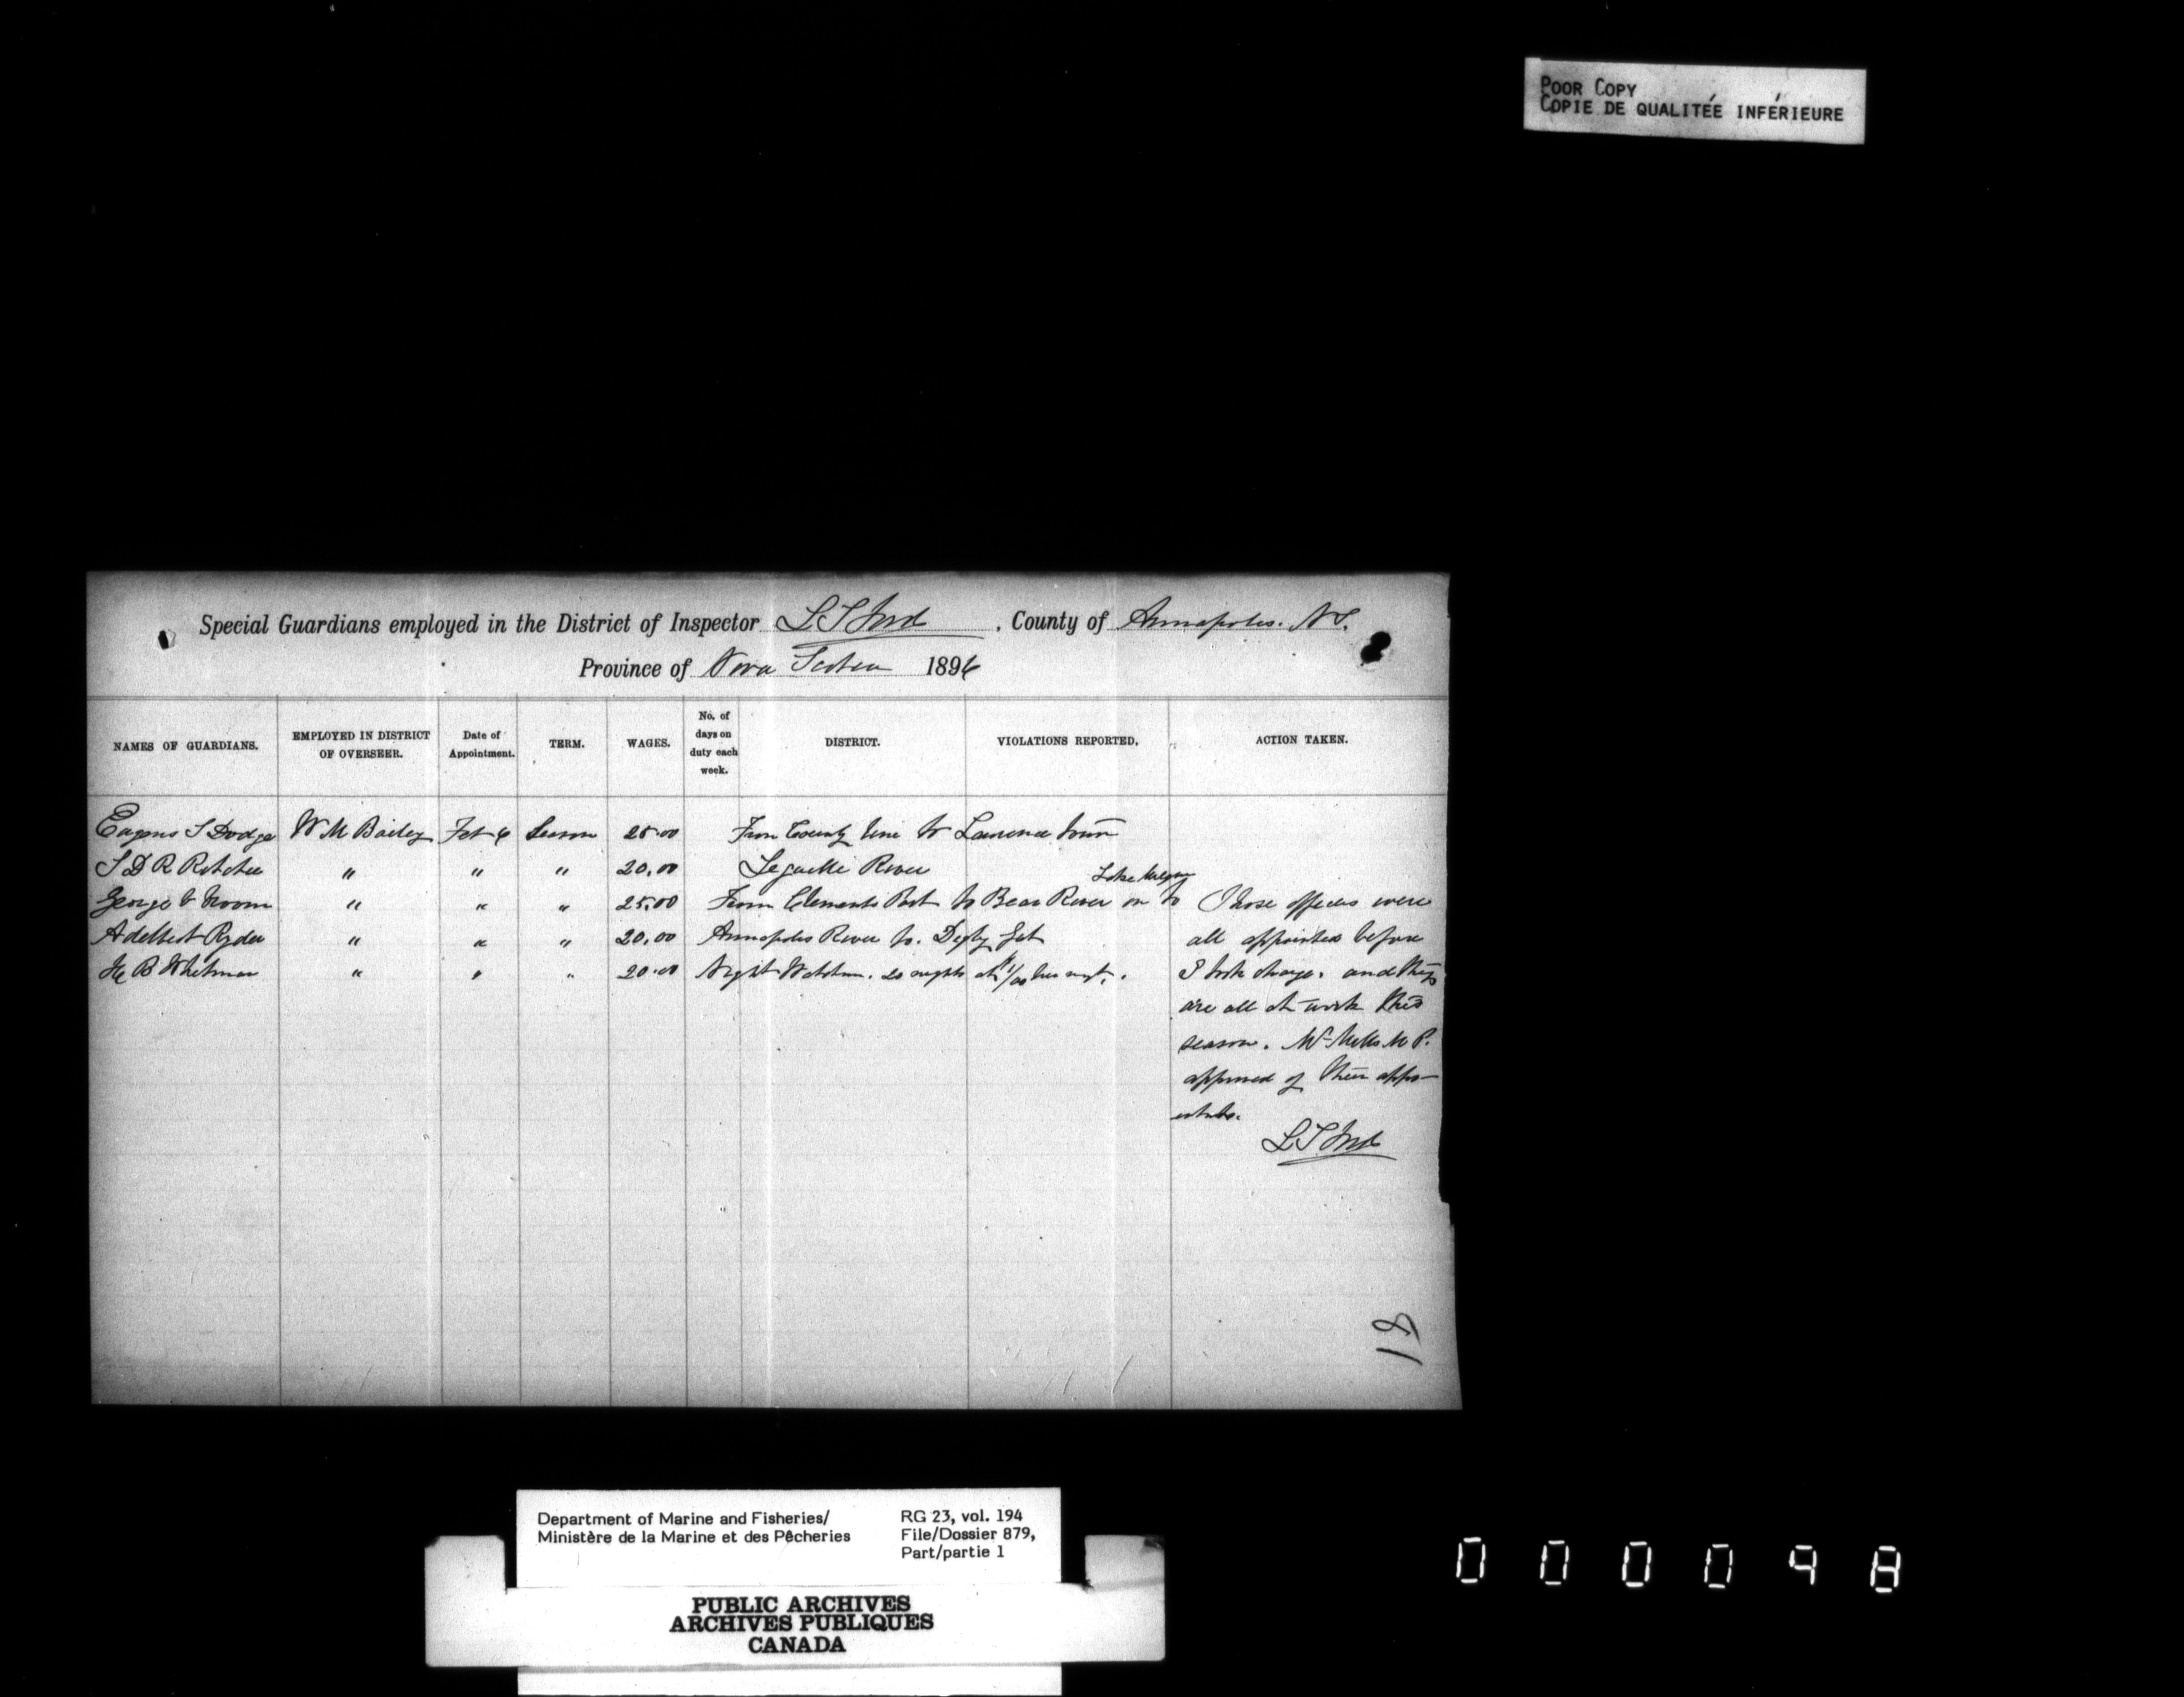 POOR COPY
COPIE DE QUALITÉE INFÉRIEURE
Special Guardians employed in the District of Inspector L S Ford, County of Annapolis. N S.
Province of Nova Scotia 1896
NAMES OF GUARDIANS. EMPLOYED IN DISTRICT OF OVERSEER. Date of Appointment. TERM. WAGES. No. of days on duty each week. DISTRICT. VIOLATIONS REPORTED. ACTION TAKEN.
Eugene S Dodge W M Bailey Feb 6 Season 25.00 From County line to Lawrence town
S D R Ritchie " " " 20.00 River
Lake
George V " " " 25.00 From Clements Port to Bear River on to
Adelbert Ryder " " " 20.00 Annapolis River to. Digby Gut
B Whitman " " " 20.00 Night Watchman. 20 nights at 1/00 per night.
Those officers were
all appointed before
I took charge. and they
are all at work this
season. Mr Mills M P.
approved of their appo-
intmts.
L S Ford
18
Department of Marine and Fisheries/
Ministère de la Marine et des Pêcheries
RG 23, vol. 194
File/Dossier 879,
Part/partie 1
PUBLIC ARCHIVES
ARCHIVES PUBLIQUES
CANADA
000098